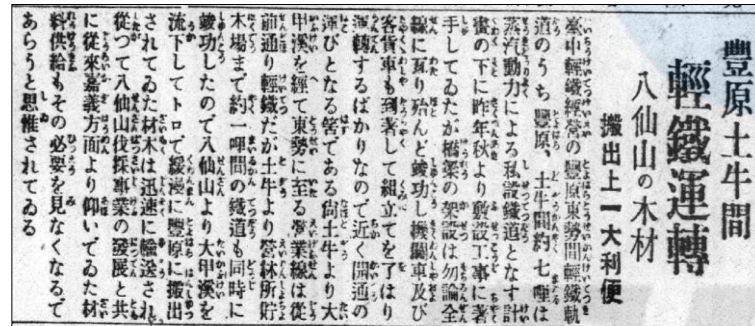 豐原土牛間
輕鐵運轉
八仙山の木材
搬出上一大利便
臺中輕鐵經營の豐原東勢間輕鐵軌
道のうち豐原、土牛間約七哩は
蒸汽動力による私設鐵道となす計
畫の下に昨年秋より敷設工事に著
手してゐたが橋梁の架設は勿論全
線に亙り殆んど竣功し機關車及び
客貨車も到著して組立てを了はり
運轉するばかりなので近く開通の
運びとなる筈である尙土牛より大
甲溪を經て東勢に至る營業線は從
前通り輕鐵だが土牛より營林所貯
木場まで約一哩間の鐵道も同時に
竣功したので八仙山より大甲溪を
流下してトロで緩慢に豐原に搬出
されてゐた材木は迅速に輸送され
從つて八仙山伐採事業の發展と共
に從來嘉義方面より仰いでゐた材
料供給もその必要を見なくなるで
あらうと思惟されてゐる